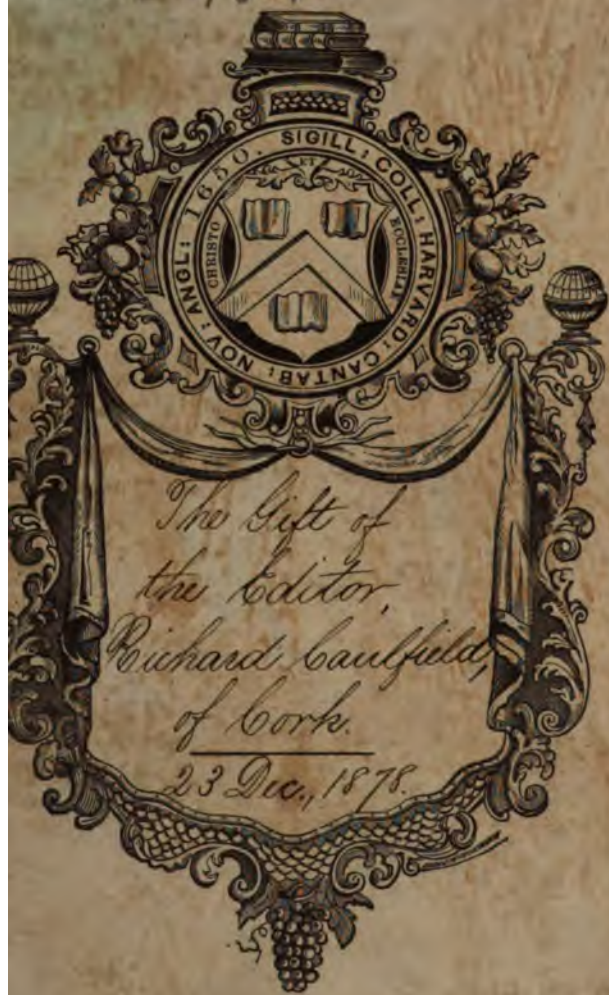 SIGILL: COLL: HARVARD: CANTAB: NOV: ANGL: 1650.
CHRISTO
ET
ECCLESIAE
The Gift of
the Editor,
Richard Caulfield,
of Cork.
23 Dec., 1878.